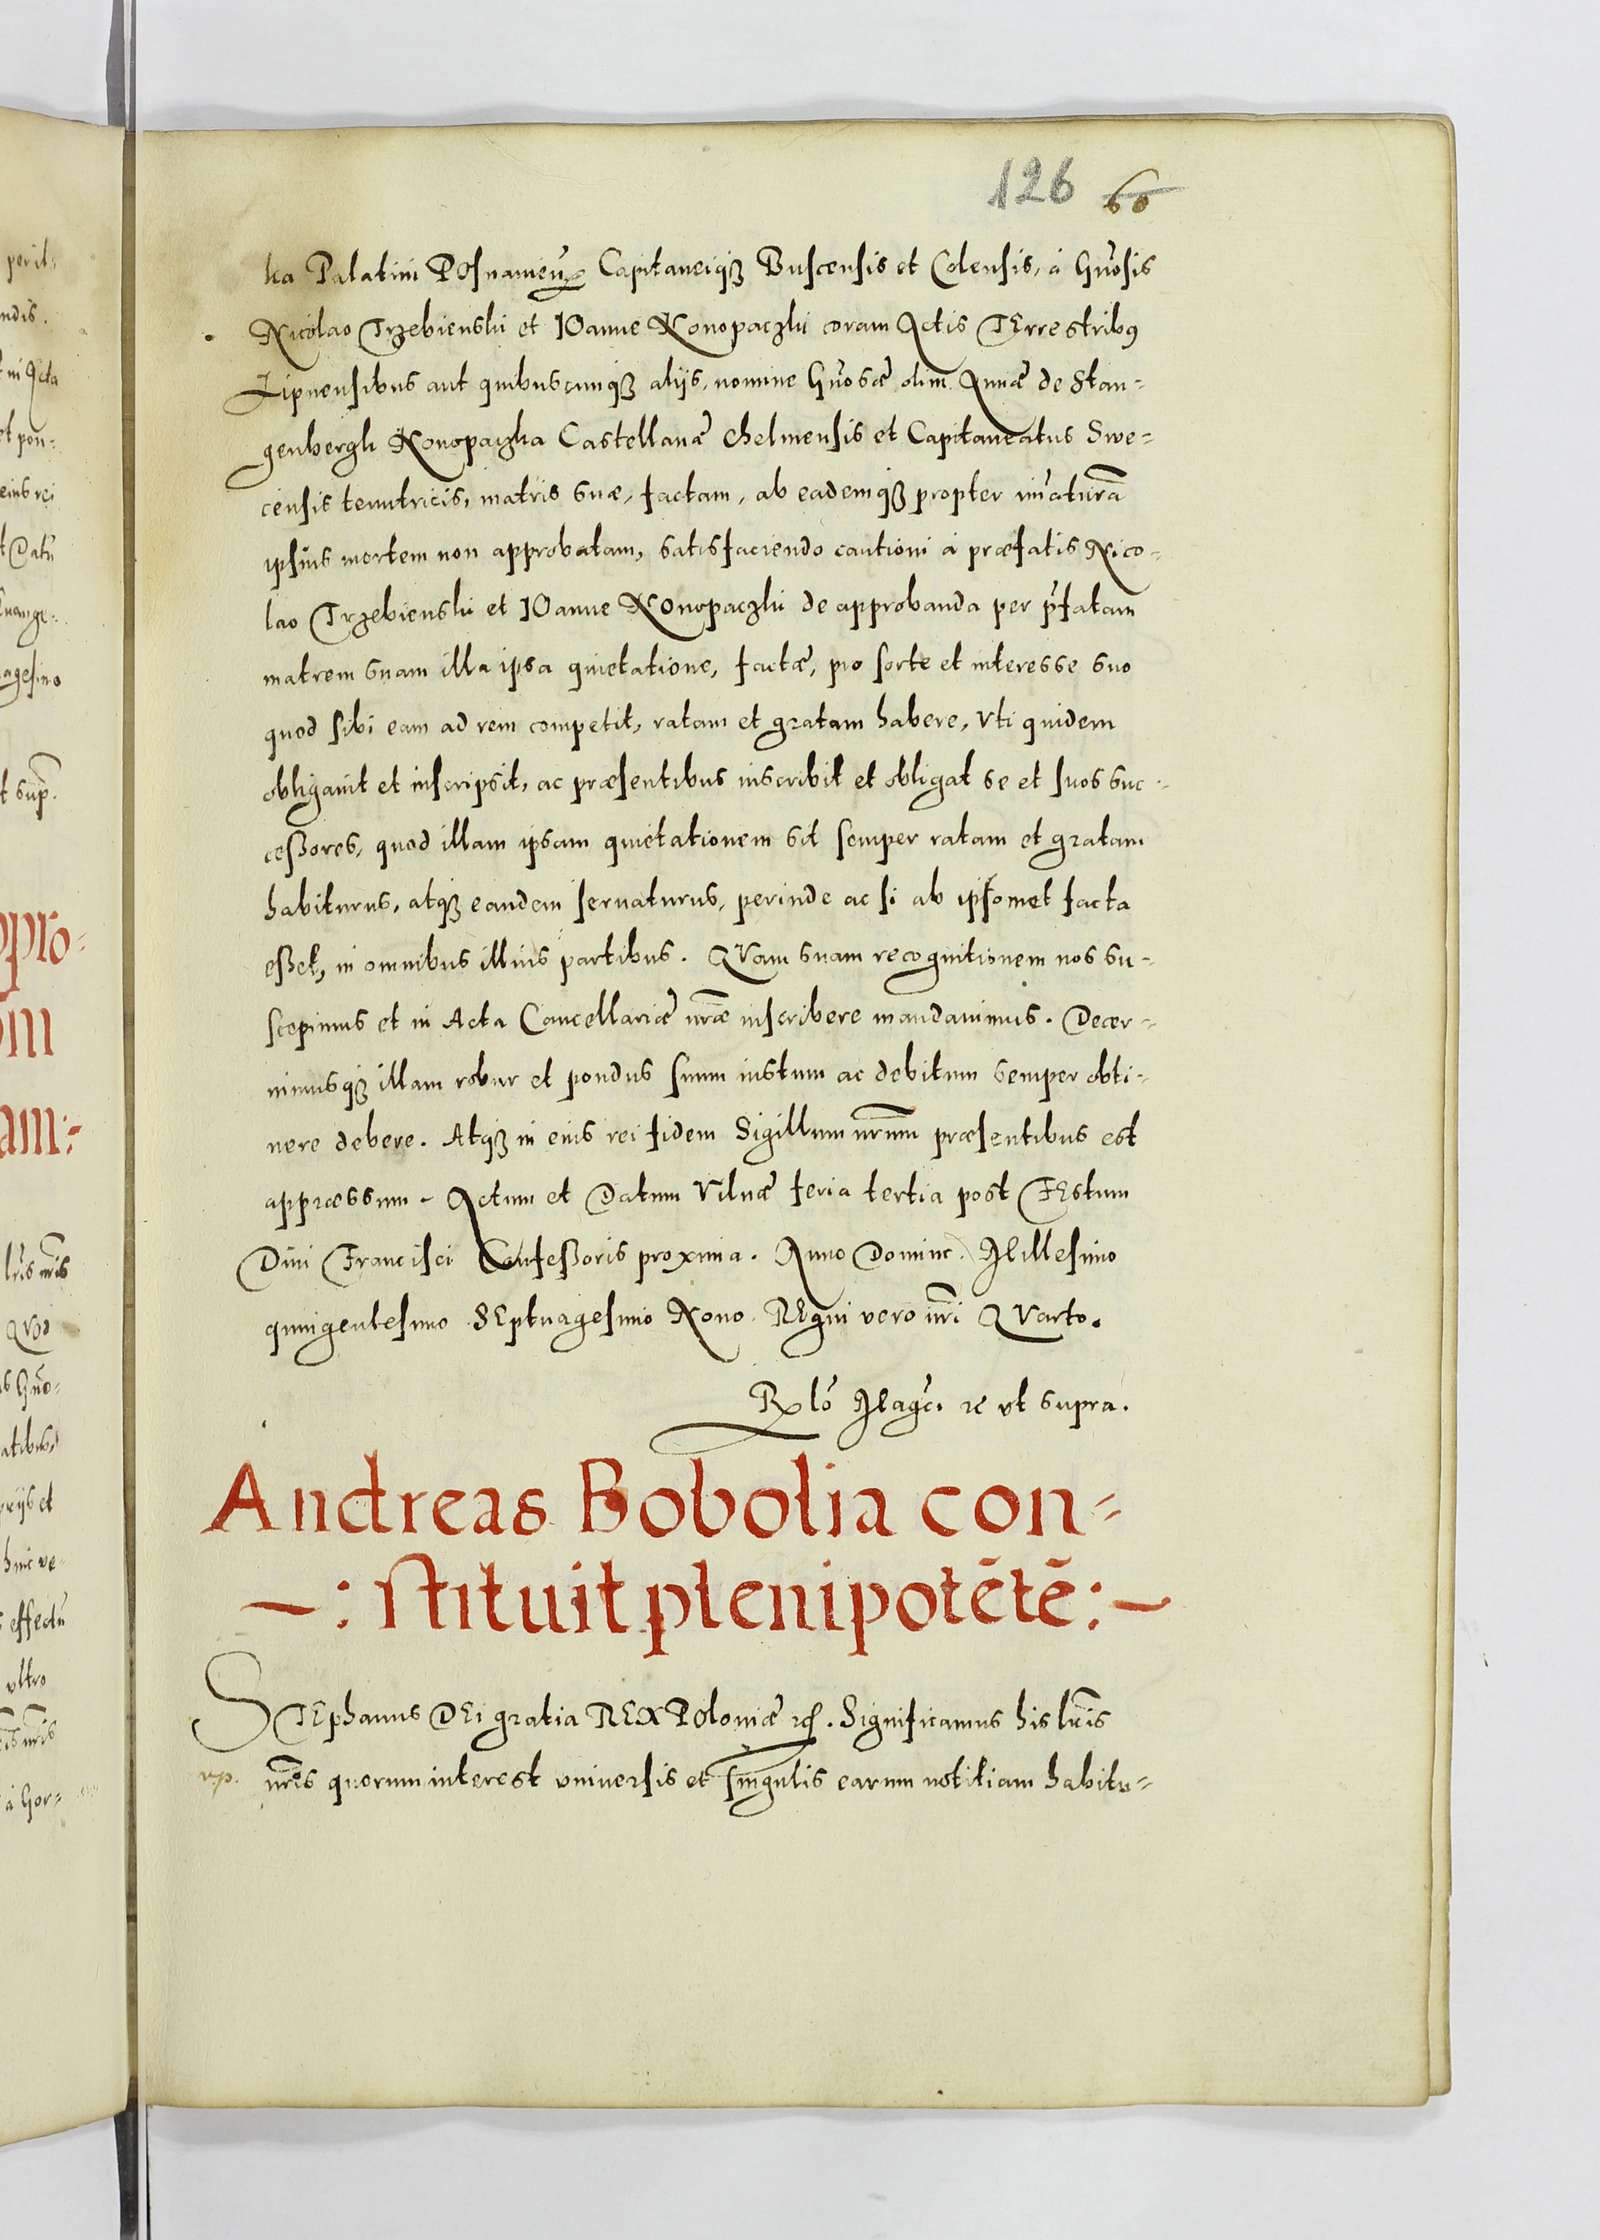 126 66
ka Palatini POsnanieñ Capitaneiqȝ Buscensis et Colensis, à Gñosis
Nicolao Trzebienski et IOanne Konopaczki coram Actis TErrestribꝰ
Lipnensibus aut quibuscunqȝ alijs, nomine Gñosæ olim Annæ de Stan-
genbergk Konopaczka Castellanæ Chelmensis et Capitaneatus Swe-
censis tenutricis, matris suæ, factam, ab eademqȝ propter im̃aturã
ipsius mortem non approbatam, satisfaciendo cautioni à præfatis Nico-
lao Trzebienski et IOanne KOnopaczki de approbanda per p̃fatam
matrem suam illa ipsa quietatione, factæ, pro sorte et interesse suo
quod sibi eam ad rem competit, ratam et gratam habere, Vti quidem
obligauit et inscripsit, ac præsentibus inscribit et obligat se et suos suc-
ceßores, quod illam ipsam quietationem sit semper ratam et gratam
habiturus, atqȝ eandem seruaturus, perinde ac si ab ipsomet facta
eßet, in omnibus illius partibus. QVam suam recognitionem nos su-
scepimus et in Acta Cancellariæ nr̃æ inscribere mandauimus. Decer-
nimusqȝ illam robur et pondus suum iustum ac debitum semper obti-
nere debere. Atqȝ in eius rei fidem Sigillum nr̃um præsentibus est
appræssum. Actum et Datum Vilnæ feria tertia post FEstum
Diui Francisci Confeßoris proxima. Anno Domini Millesimo
quingentesimo SEptuagesimo Nono. REgni vero nr̃i QVarto.
Rlõ Magci. ꝛc vt supra.
Andreas Bobolia con-
-: stituit plenipotētē:-
STEphanus DEi gratia REX POloniæ ꝛc̃. Significamus his lr̃is
vp. nr̃is quorum interest vniuersis et singulis earum notitiam habitu-